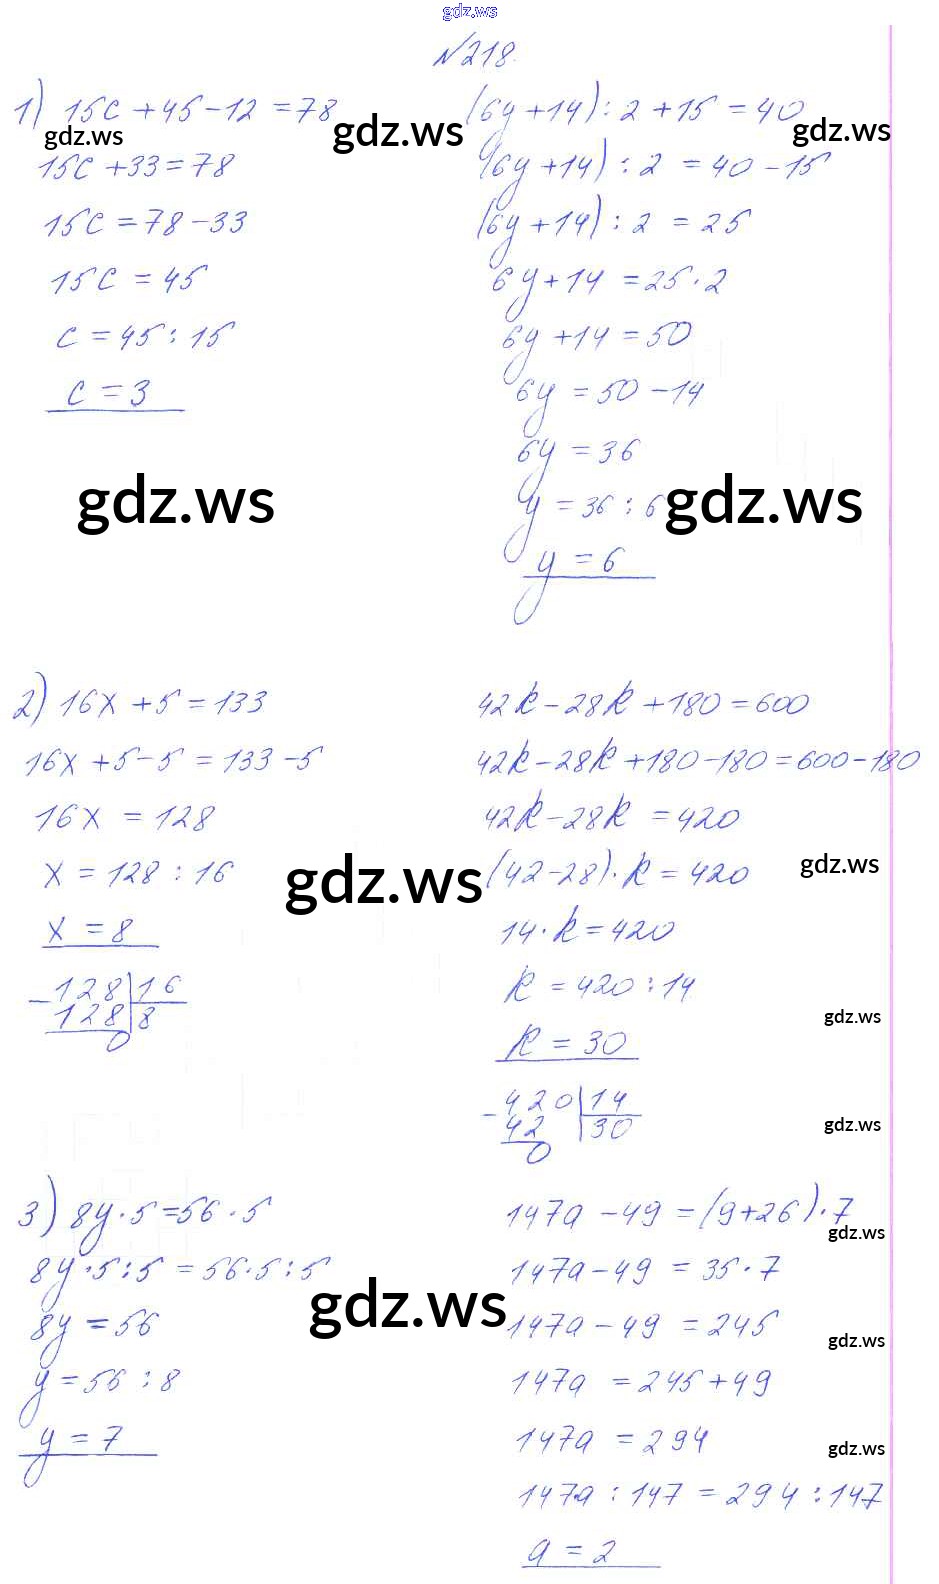 gdz.ws
№218.
1) 15c + 45 - 12 = 78
15c + 33 = 78
15c = 78 - 33
15c = 45
c = 45 : 15
c = 3
(6y + 14) : 2 + 15 = 40
(6y + 14) : 2 = 40 - 15
(6y + 14) : 2 = 25
6y + 14 = 25 · 2
6y + 14 = 50
6y = 50 - 14
6y = 36
y = 36 : 6
y = 6
gdz.ws
gdz.ws
gdz.ws
gdz.ws
gdz.ws
2) 16x + 5 = 133
16x + 5 - 5 = 133 - 5
16x = 128
x = 128 : 16
x = 8
-128|16
128|8
0
42k - 28k + 180 = 600
42k - 28k + 180 - 180 = 600 - 180
42k - 28k = 420
(42 - 28) · k = 420
14 · k = 420
k = 420 : 14
k = 30
-420|14
42|30
0
gdz.ws
gdz.ws
gdz.ws
gdz.ws
3) 8y · 5 = 56 · 5
8y · 5 : 5 = 56 · 5 : 5
8y = 56
y = 56 : 8
y = 7
147a - 49 = (9 + 26) · 7
147a - 49 = 35 · 7
147a - 49 = 245
147a = 245 + 49
147a = 294
147a : 147 = 294 : 147
a = 2
gdz.ws
gdz.ws
gdz.ws
gdz.ws